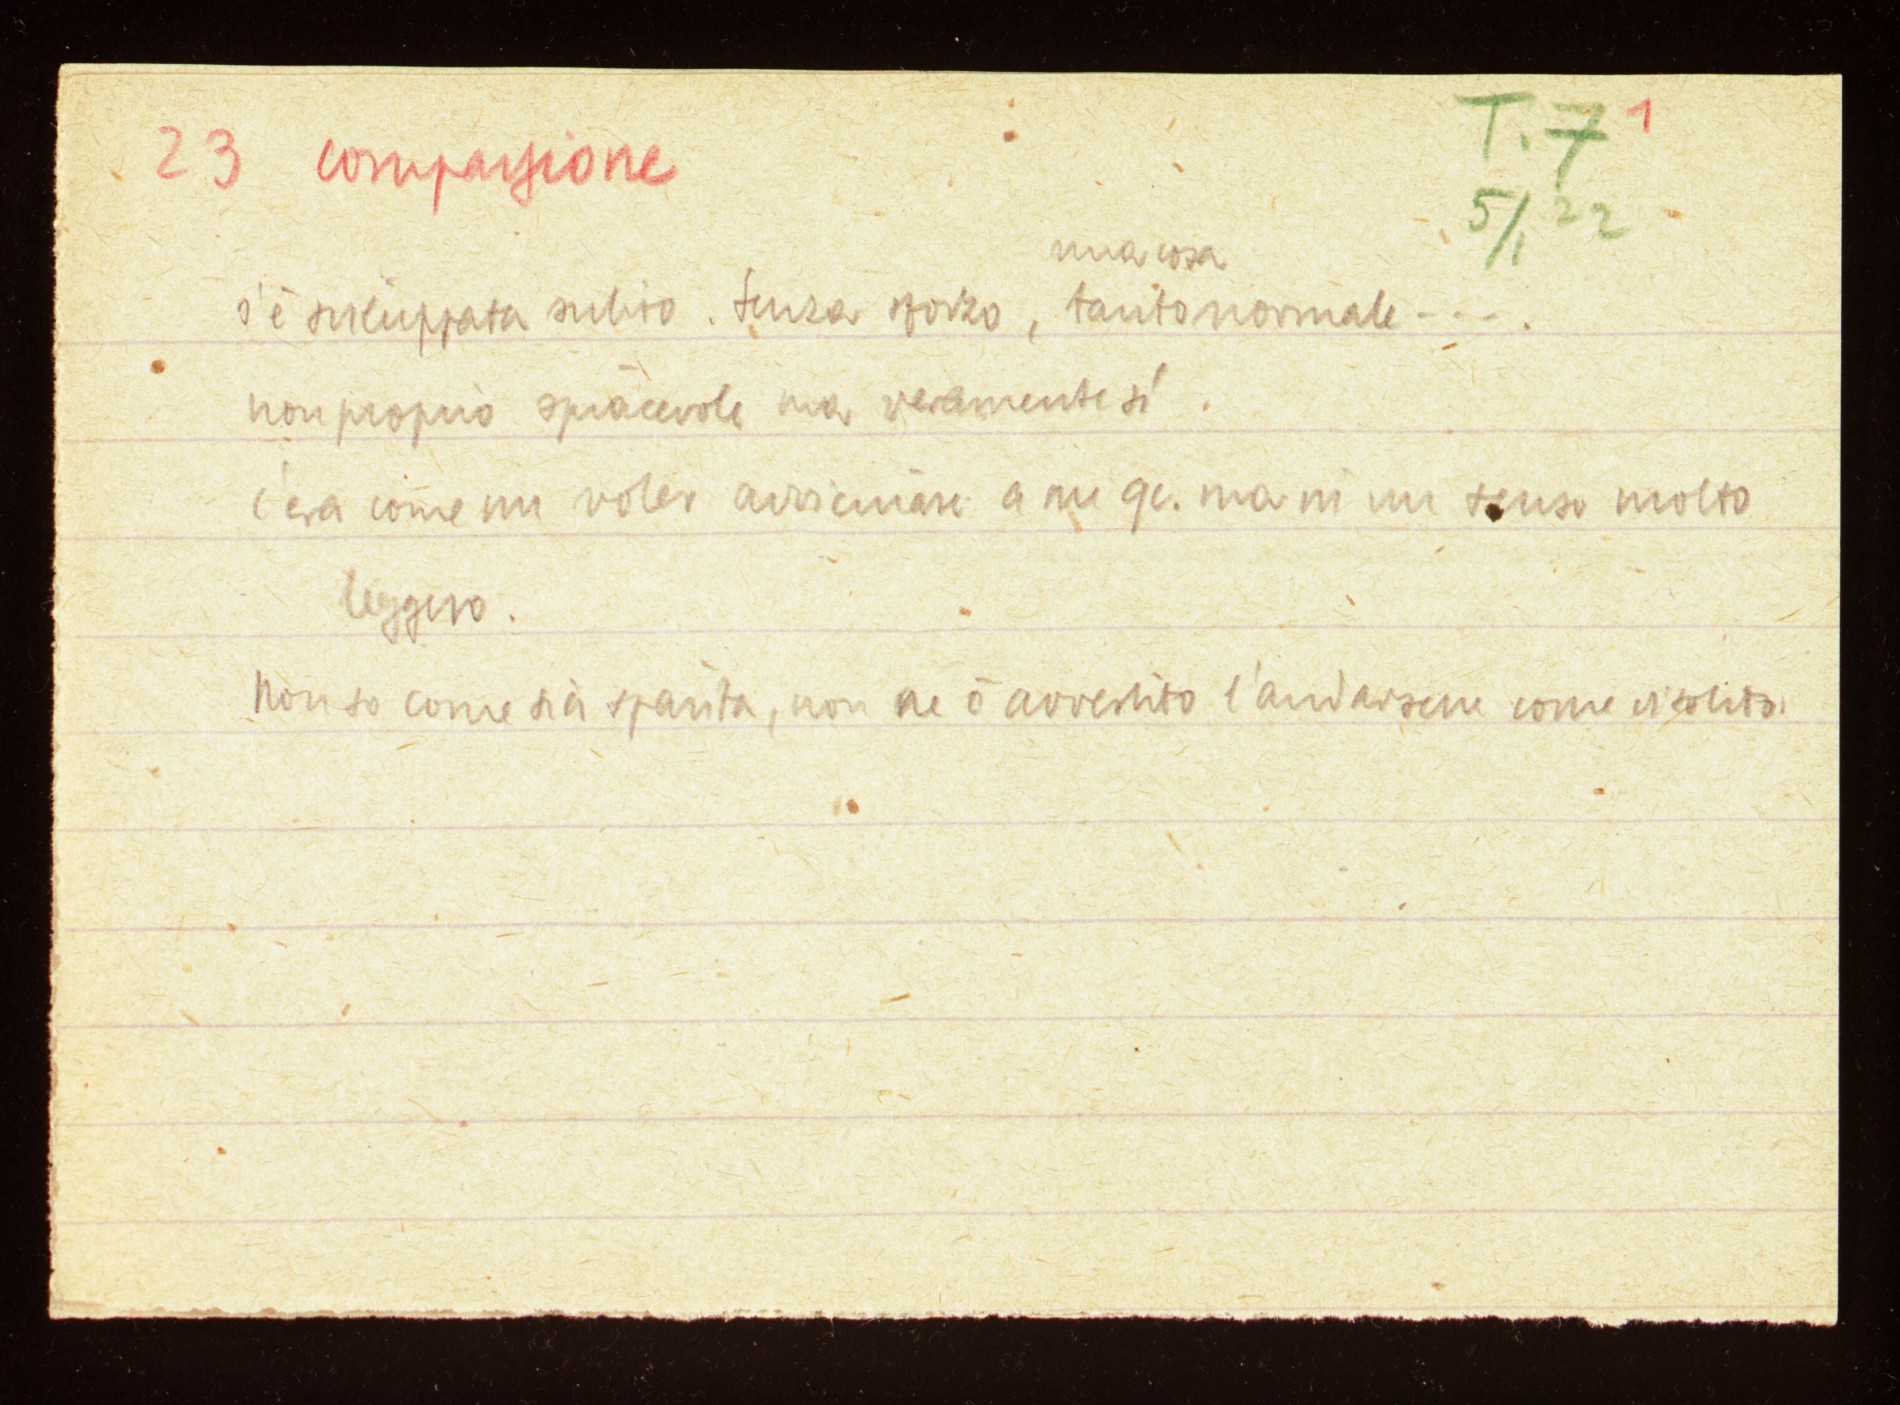 23 compassione
T. 7 1
5/1 22
una cosa
s'è sviluppata subito. Senza sforzo, tanto normale ---.
non proprio spiacevole ma veramente sì.
c'era come un voler avvicinare a me qc. ma in un senso molto
leggero.
Non so come sia sparita, non ne ò avvertito l'andarsene come il solito.